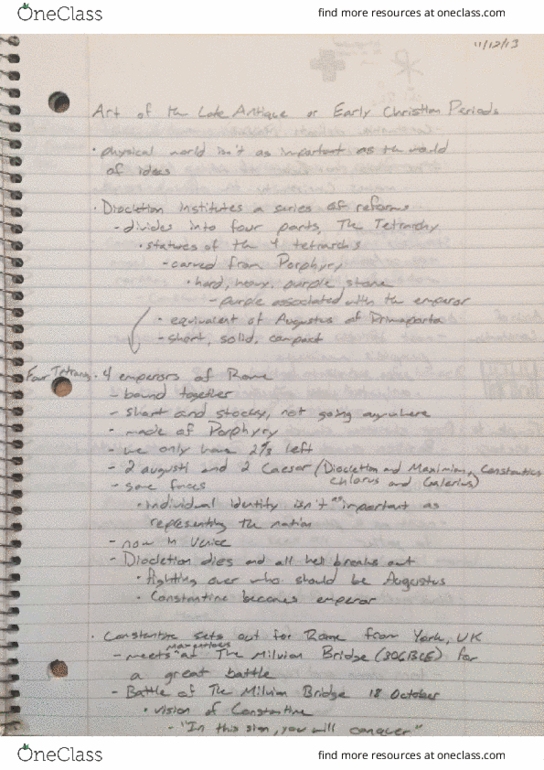 OneClass
find more resources at oneclass.com
11/12/13
Art of the Late Antique or Early Christian Periods
· physical world isn't as important as the world
of ideas
· Diocletion institutes a series of reforms
- divides into four parts, The Tetrarchy
· statues of the 4 tetrarchs
- carved from Porphyry
· hard, heavy, purple stone
- purple associated with the emperor
· equivalent of Augustus of Primaporta
- short, solid, compact
Four Tetrarchs · 4 emperors of Rome
- bound together
- short and stocky, not going anywhere
- made of Porphyry
- we only have left
- 2 augusti and 2 Caesar (Diocletion and Maximian, Constantius
Chlorus and Galerius)
- same faces
· individual identity isn't as important as
representing the nation
- now in Venice
- Diocletion dies and all hell breaks out
· fighting over who should be Augustus
· Constantine becomes emperor
· Constantine sets out for Rome from York, UK
- meets at The Milvian Bridge (306BCE) for
a great battle
- Battle of The Milvian Bridge 18 October
· vision of Constantine
- "In this sign, you will conquer"
OneClass
find more resources at oneclass.com